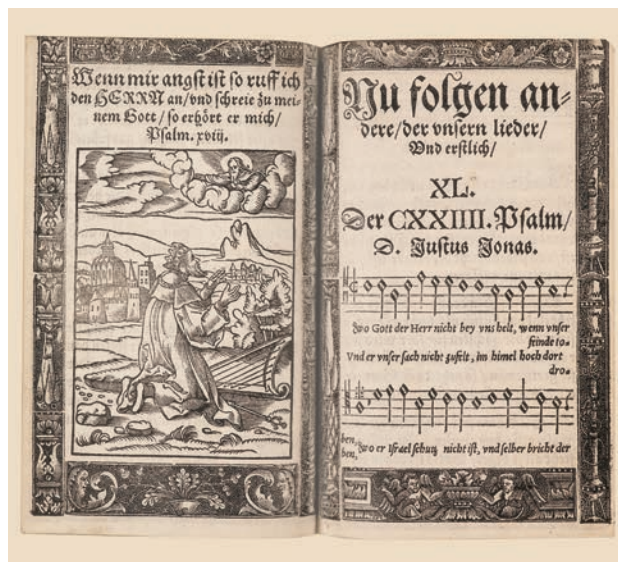 Wenn mir angst ist so ruff ich
den HERRN an/vnd schreie zu mei-
nem Gott/so erhört er mich/
Psalm. xviij.
Nu folgen an-
dere/der vnsern lieder/
Vnd erstlich/
XL.
Der CXXIIII. Psalm/
D. Justus Jonas.
Wo Gott der Herr nicht bey vns helt, wenn vnser
feinde to-
Vnd er vnser sach nicht zufelt, im himel hoch dort
dro-
ben,
ben, Wo er Israel schutz nicht ist, vnd selber bricht der